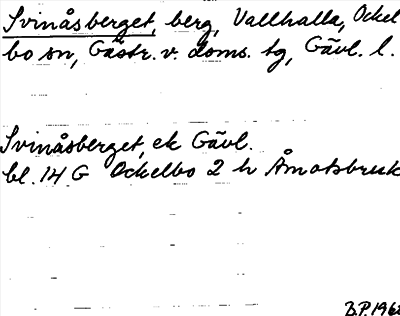 Svinåsberget, berg, Vallhalla, Ockel
bo sn, Gästr. v. doms. tg, Gävl. l.
Svinåsberget, ek Gävl.
bl. 14 G Ockelbo 2 h Åmotsbruk
B.P. 196